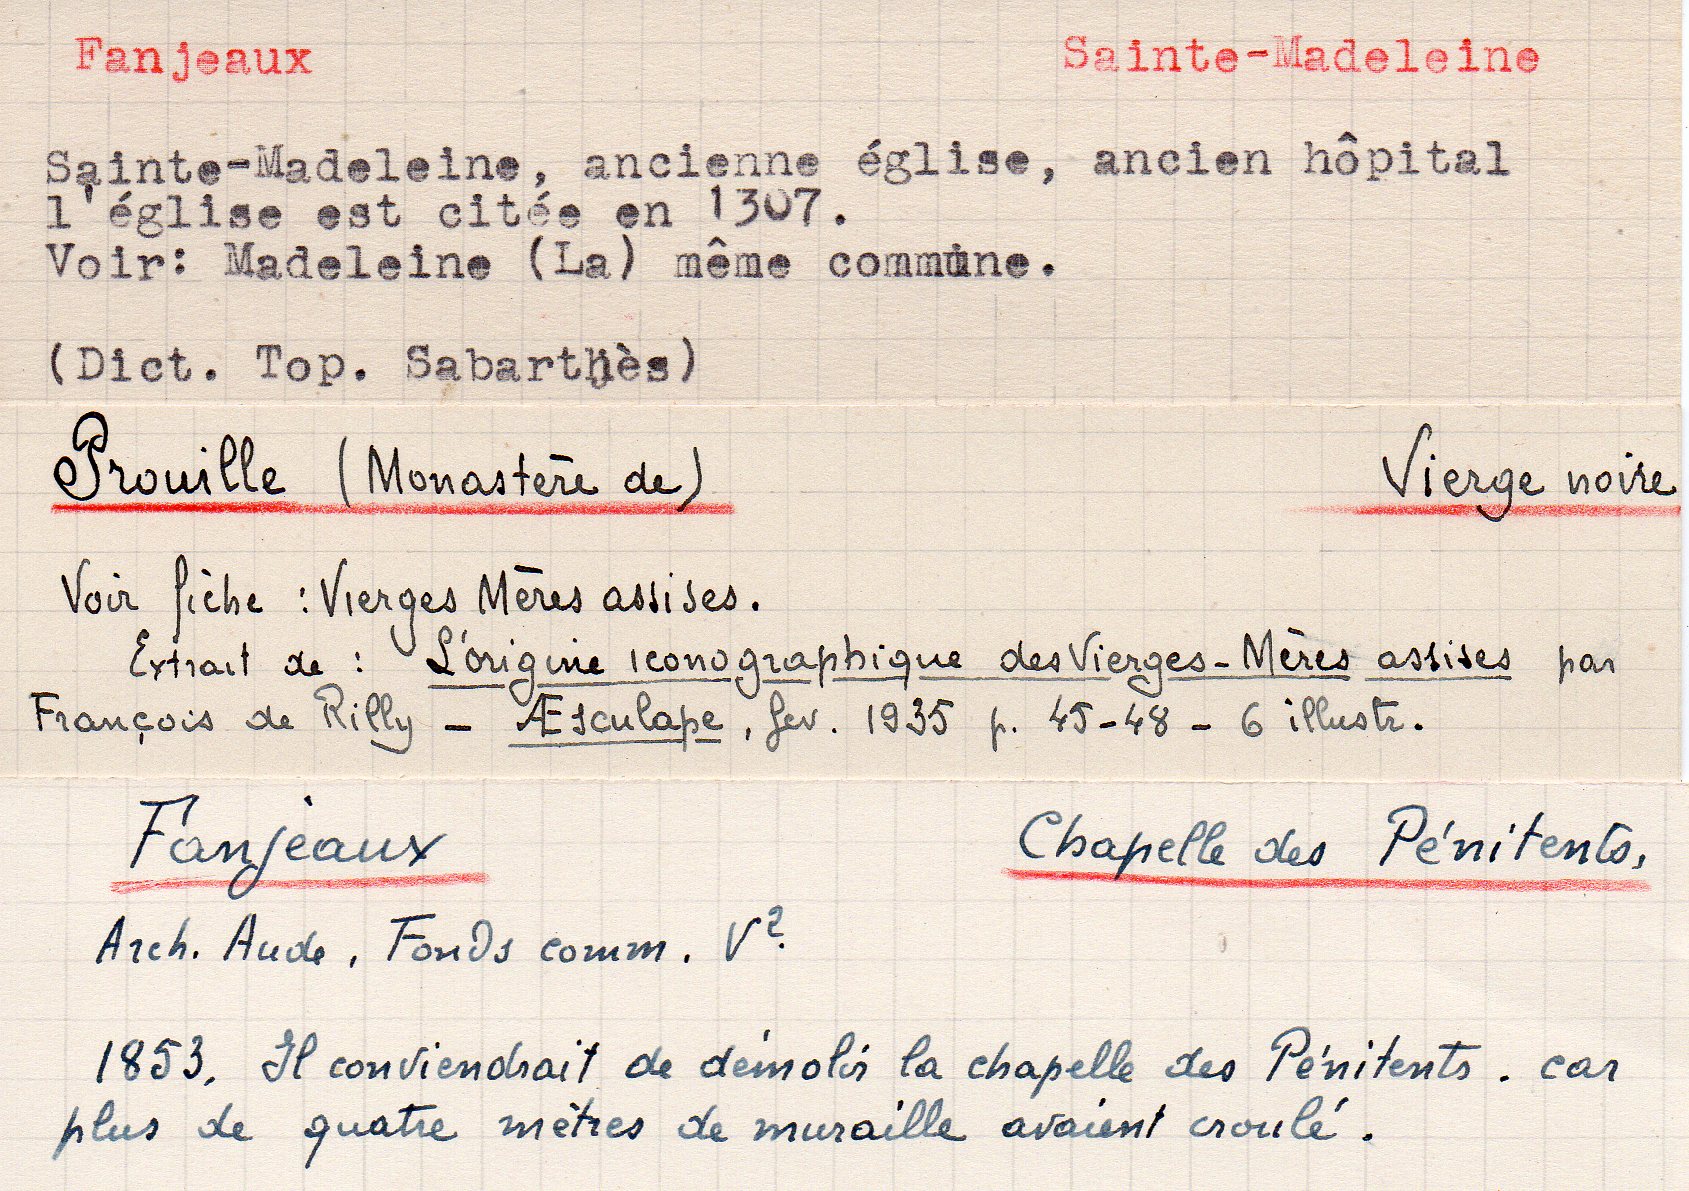 Fanjeaux Sainte-Madeleine
Sainte-Madeleine, ancienne église, ancien hôpital
l'église est citée en 1307.
Voir: Madeleine (La) même commune.
(Dict. Top. Sabarthès)
Prouille (Monastère de) Vierge noire
Voir fiche : Vierges Mères assises.
Extrait de : L'origine iconographique des Vierges-Mères assises par
François de Rilly - Æsculape, fev. 1935 p. 45-48 - 6 illustr.
Fanjeaux Chapelle des Pénitents.
Arch. Aude, Fonds comm. V².
1853. Il conviendrait de démolir la chapelle des Pénitents. car
plus de quatre mètres de muraille avaient croulé.